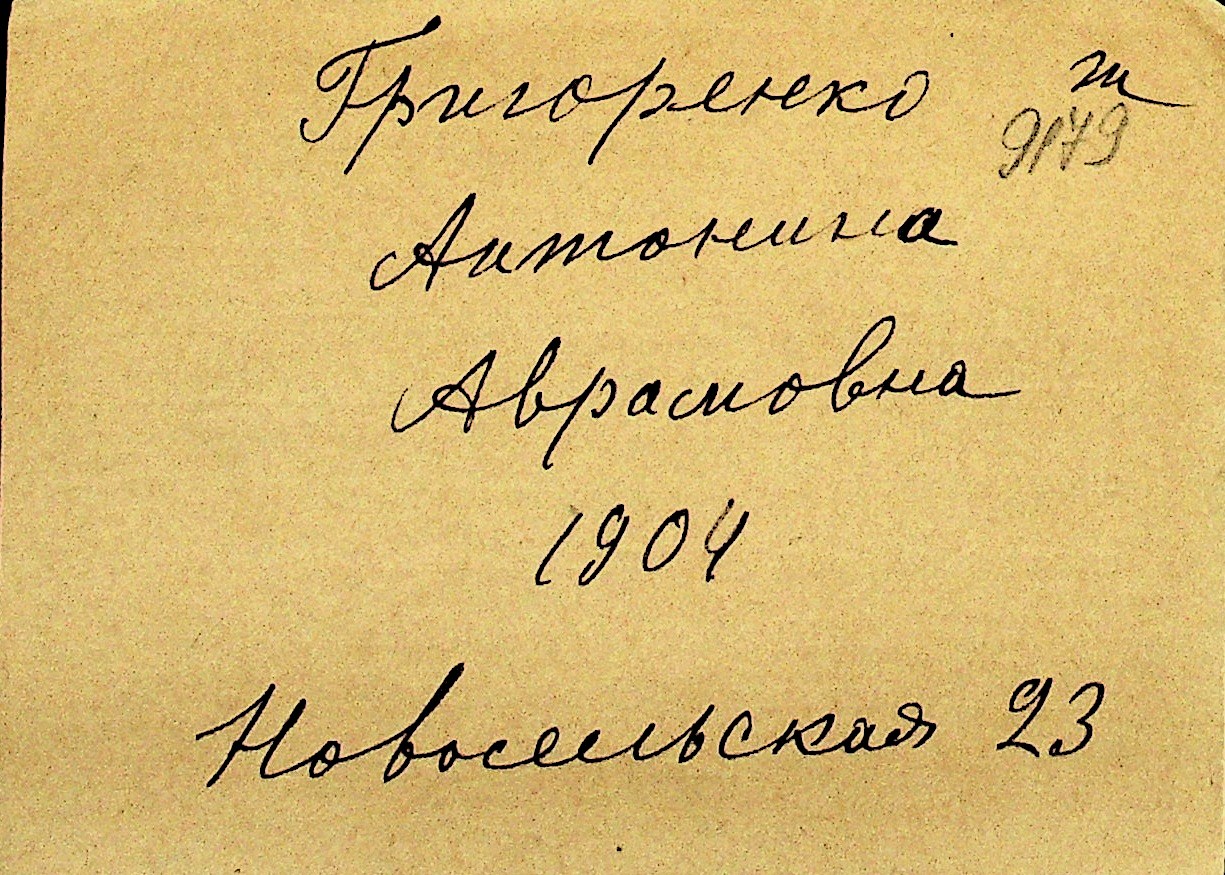 Григоренко т
9179
Антонина
Аврамовна
1904
Новосельская 23